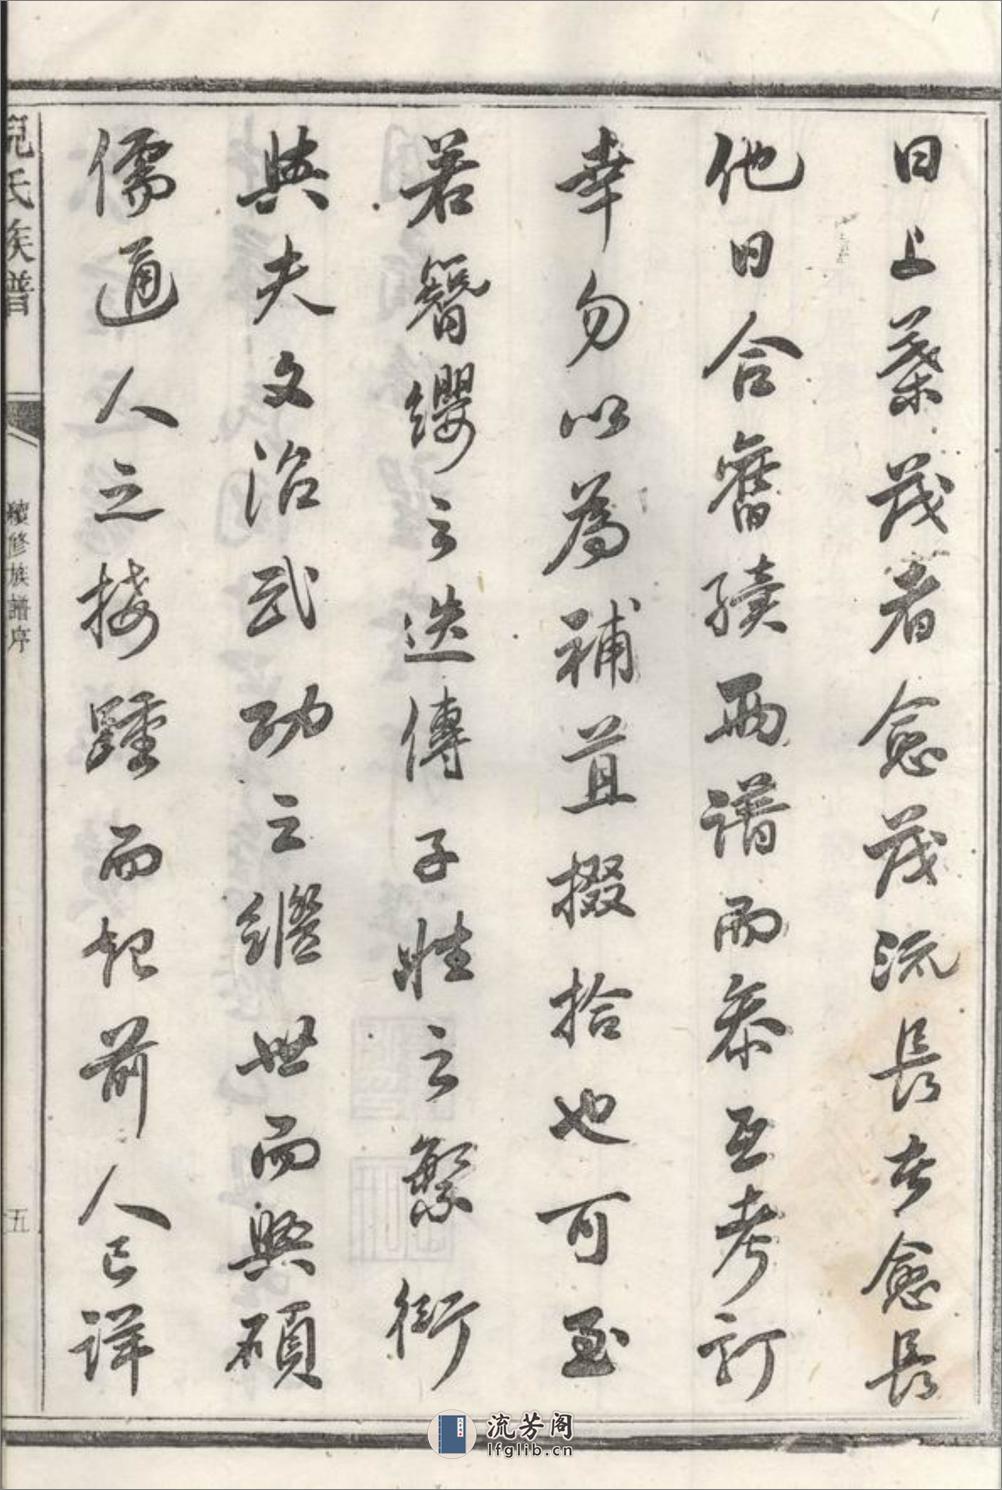 日上葉茂者愈茂流長者愈長
他日合舊續兩譜而叅互考訂
幸勿以為補苴掇拾也可至
若簪纓之迭傳子姓之繁衍
與夫文治武功之繼世而興碩
儒通人之接踵而起前人已詳
倪氏族譜
續修族譜序
五
流芳阁
lfglib.cn